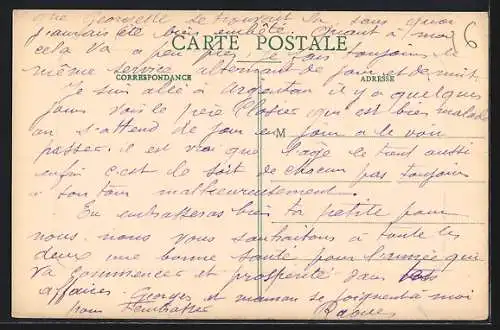 que Georgette se trouvait là, sans quoi
j'aurais été bien embêté. Quant à moi
CARTE POSTALE
6
cela va à peu près, je fais toujours le
même service alternant de jour et de nuit.
CORRESPONDANCE
ADRESSE
Je suis allé à Argentan il y a quelques
jours voir le père Closier qui est bien malade
on s'attend de jour en jour à le voir
M
passer. il est vrai que l'age le tient aussi
enfin c'est de soit de chacun pas toujours
à son tour malheureusement.
Tu embrasseras bien ta petite pour
nous. nous vous souhaitons à toute les
deux une bonne santé pour l'année qui
va commencer et prospérité dans vos
affaires. Georges et maman se joignent à moi
pour t'embrasser